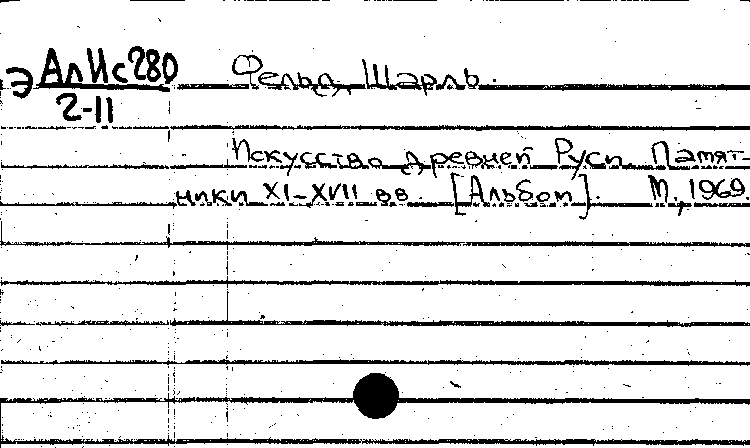 Э АлИс280
2-11
Фельд, Шарль.
Искусство древней Руси. Памят-
ники XI-XVII вв. [Альбом]. М., 1969.